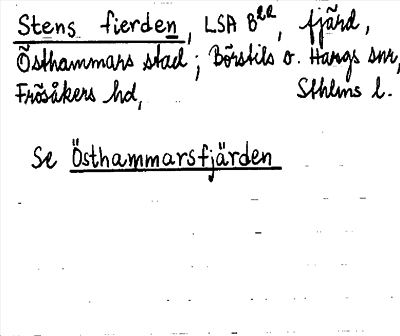 Stens fierden, LSA B22, fjärd,
Östhammars stad; Börstils o. Hargs snr,
Frösåkers hd, Sthlms l.
Se Östhammarsfjärden